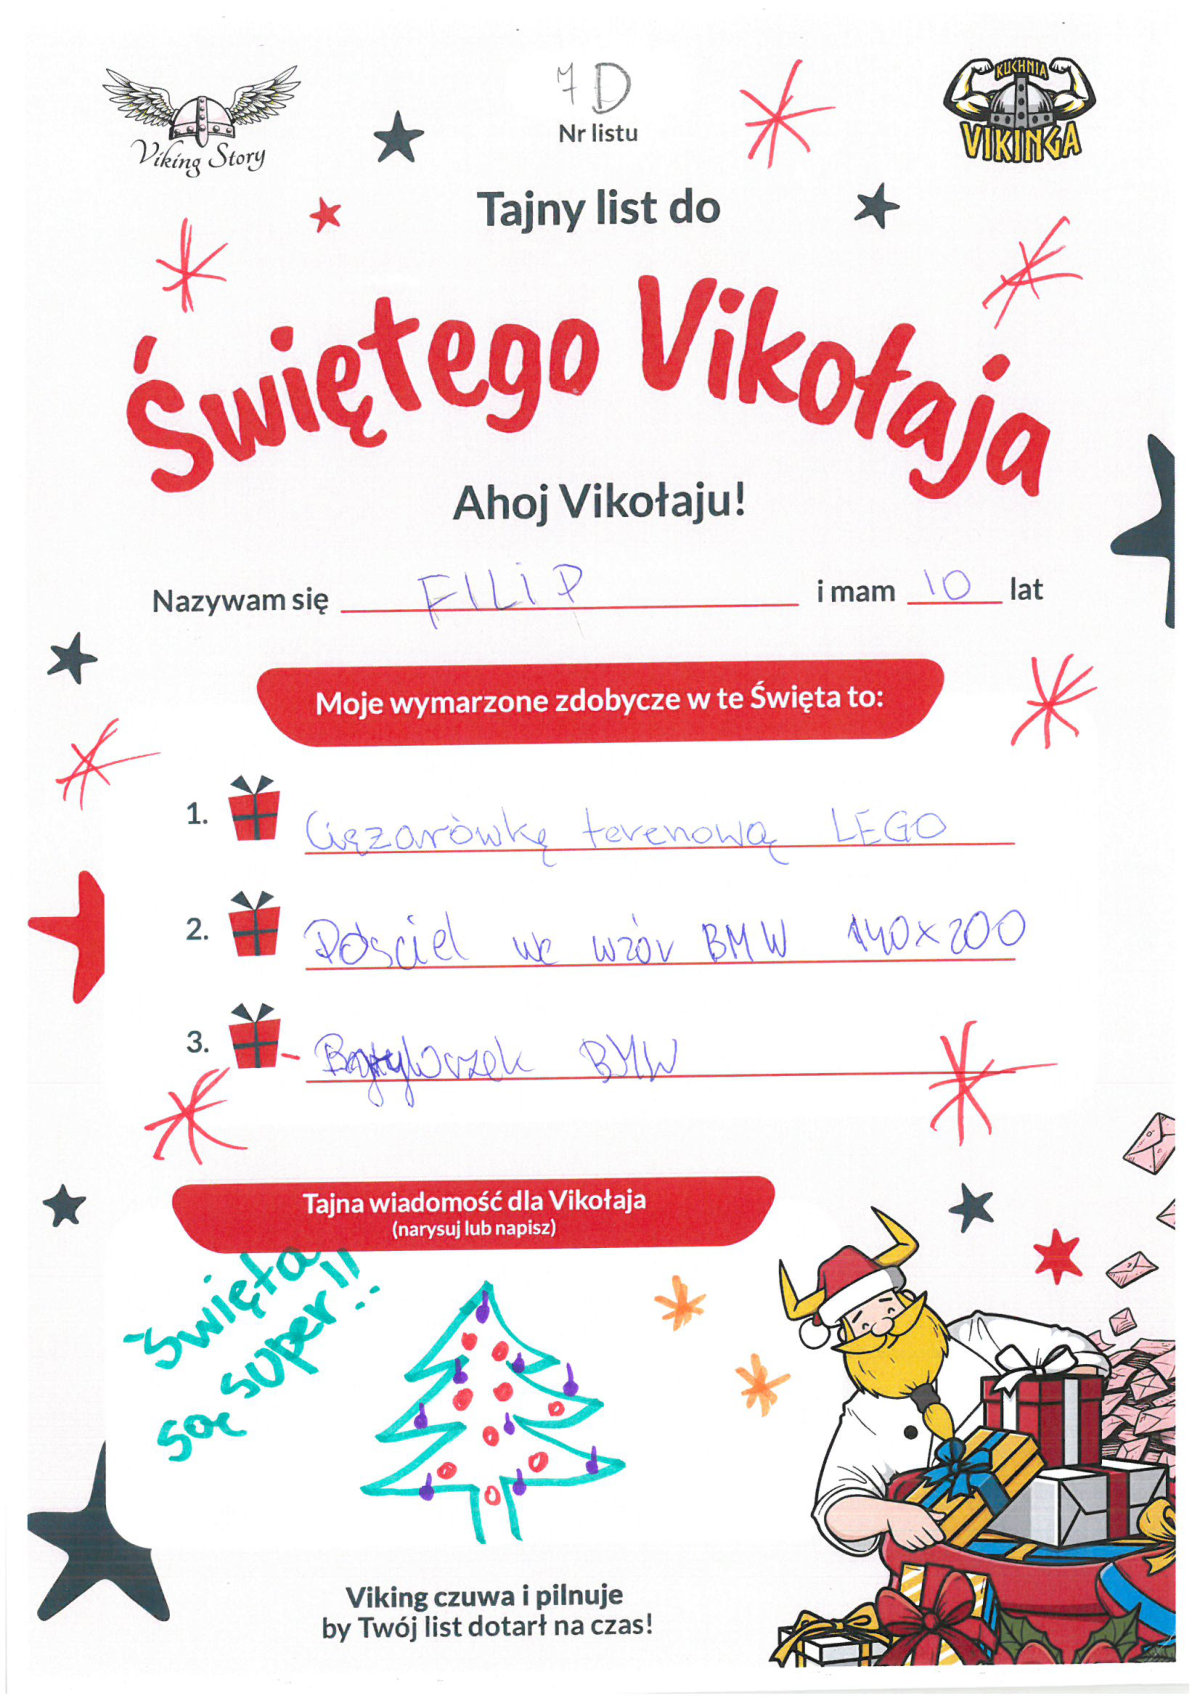 Viking Story
7D
Nr listu
KUCHNIA
VIKINGA
Tajny list do
Świętego Vikołaja
Ahoj Vikołaju!
Nazywam się FILiP i mam 10 lat
Moje wymarzone zdobycze w te Święta to:
1. Ciężarówkę terenową LEGO
2. Pościel we wzór BMW 140x200
3. BMW
Tajna wiadomość dla Vikołaja
(narysuj lub napisz)
Święta
są super!!
Viking czuwa i pilnuje
by Twój list dotarł na czas!